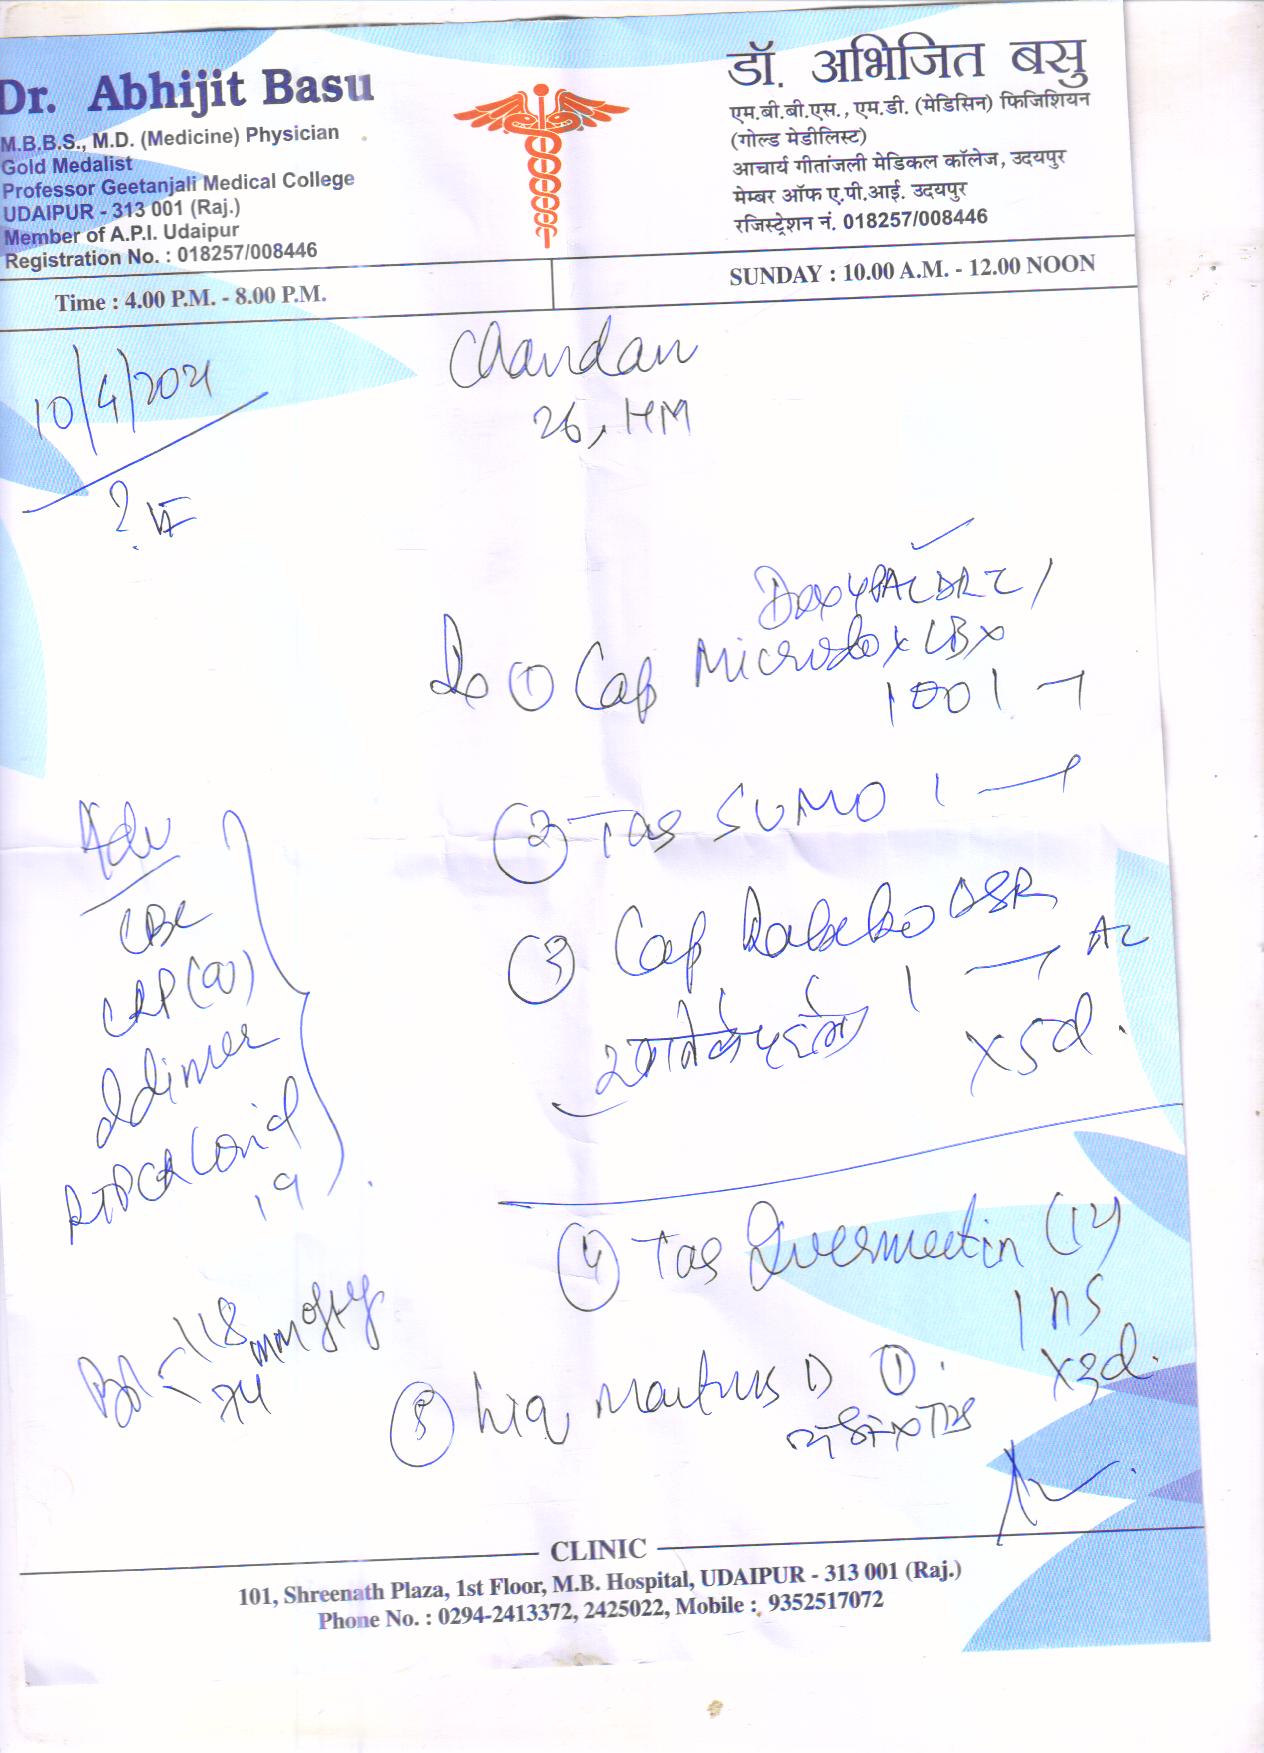 Dr. Abhijit Basu
M.B.B.S., M.D. (Medicine) Physician
Gold Medalist
Professor Geetanjali Medical College
UDAIPUR - 313 001 (Raj.)
Member of A.P.I. Udaipur
Registration No. : 018257/008446
डॉ. अभिजित बसु
एम.बी.बी.एस., एम.डी. (मेडिसिन) फिजिशियन
(गोल्ड मेडीलिस्ट)
आचार्य गीतांजली मेडिकल कॉलेज, उदयपुर
मेम्बर ऑफ ए.पी.आई. उदयपुर
रजिस्ट्रेशन नं. 018257/008446
Time : 4.00 P.M. - 8.00 P.M.
SUNDAY : 10.00 A.M. - 12.00 NOON
10/4/2021
Chandan
26, HM
?
① Cap Microdox LBX
1
② Tab SUMO 1
③ Cap DSR
1 AC
खाने के पहले
x5d.
Adv
CBC
CRP(Q)
Ddimer
RTPCR Covid
19
④ Tab Ivermectin (12)
1 HS
x3d.
BP 118 mmofHg
74
⑤ Liq D ①
CLINIC
101, Shreenath Plaza, 1st Floor, M.B. Hospital, UDAIPUR - 313 001 (Raj.)
Phone No. : 0294-2413372, 2425022, Mobile : 9352517072